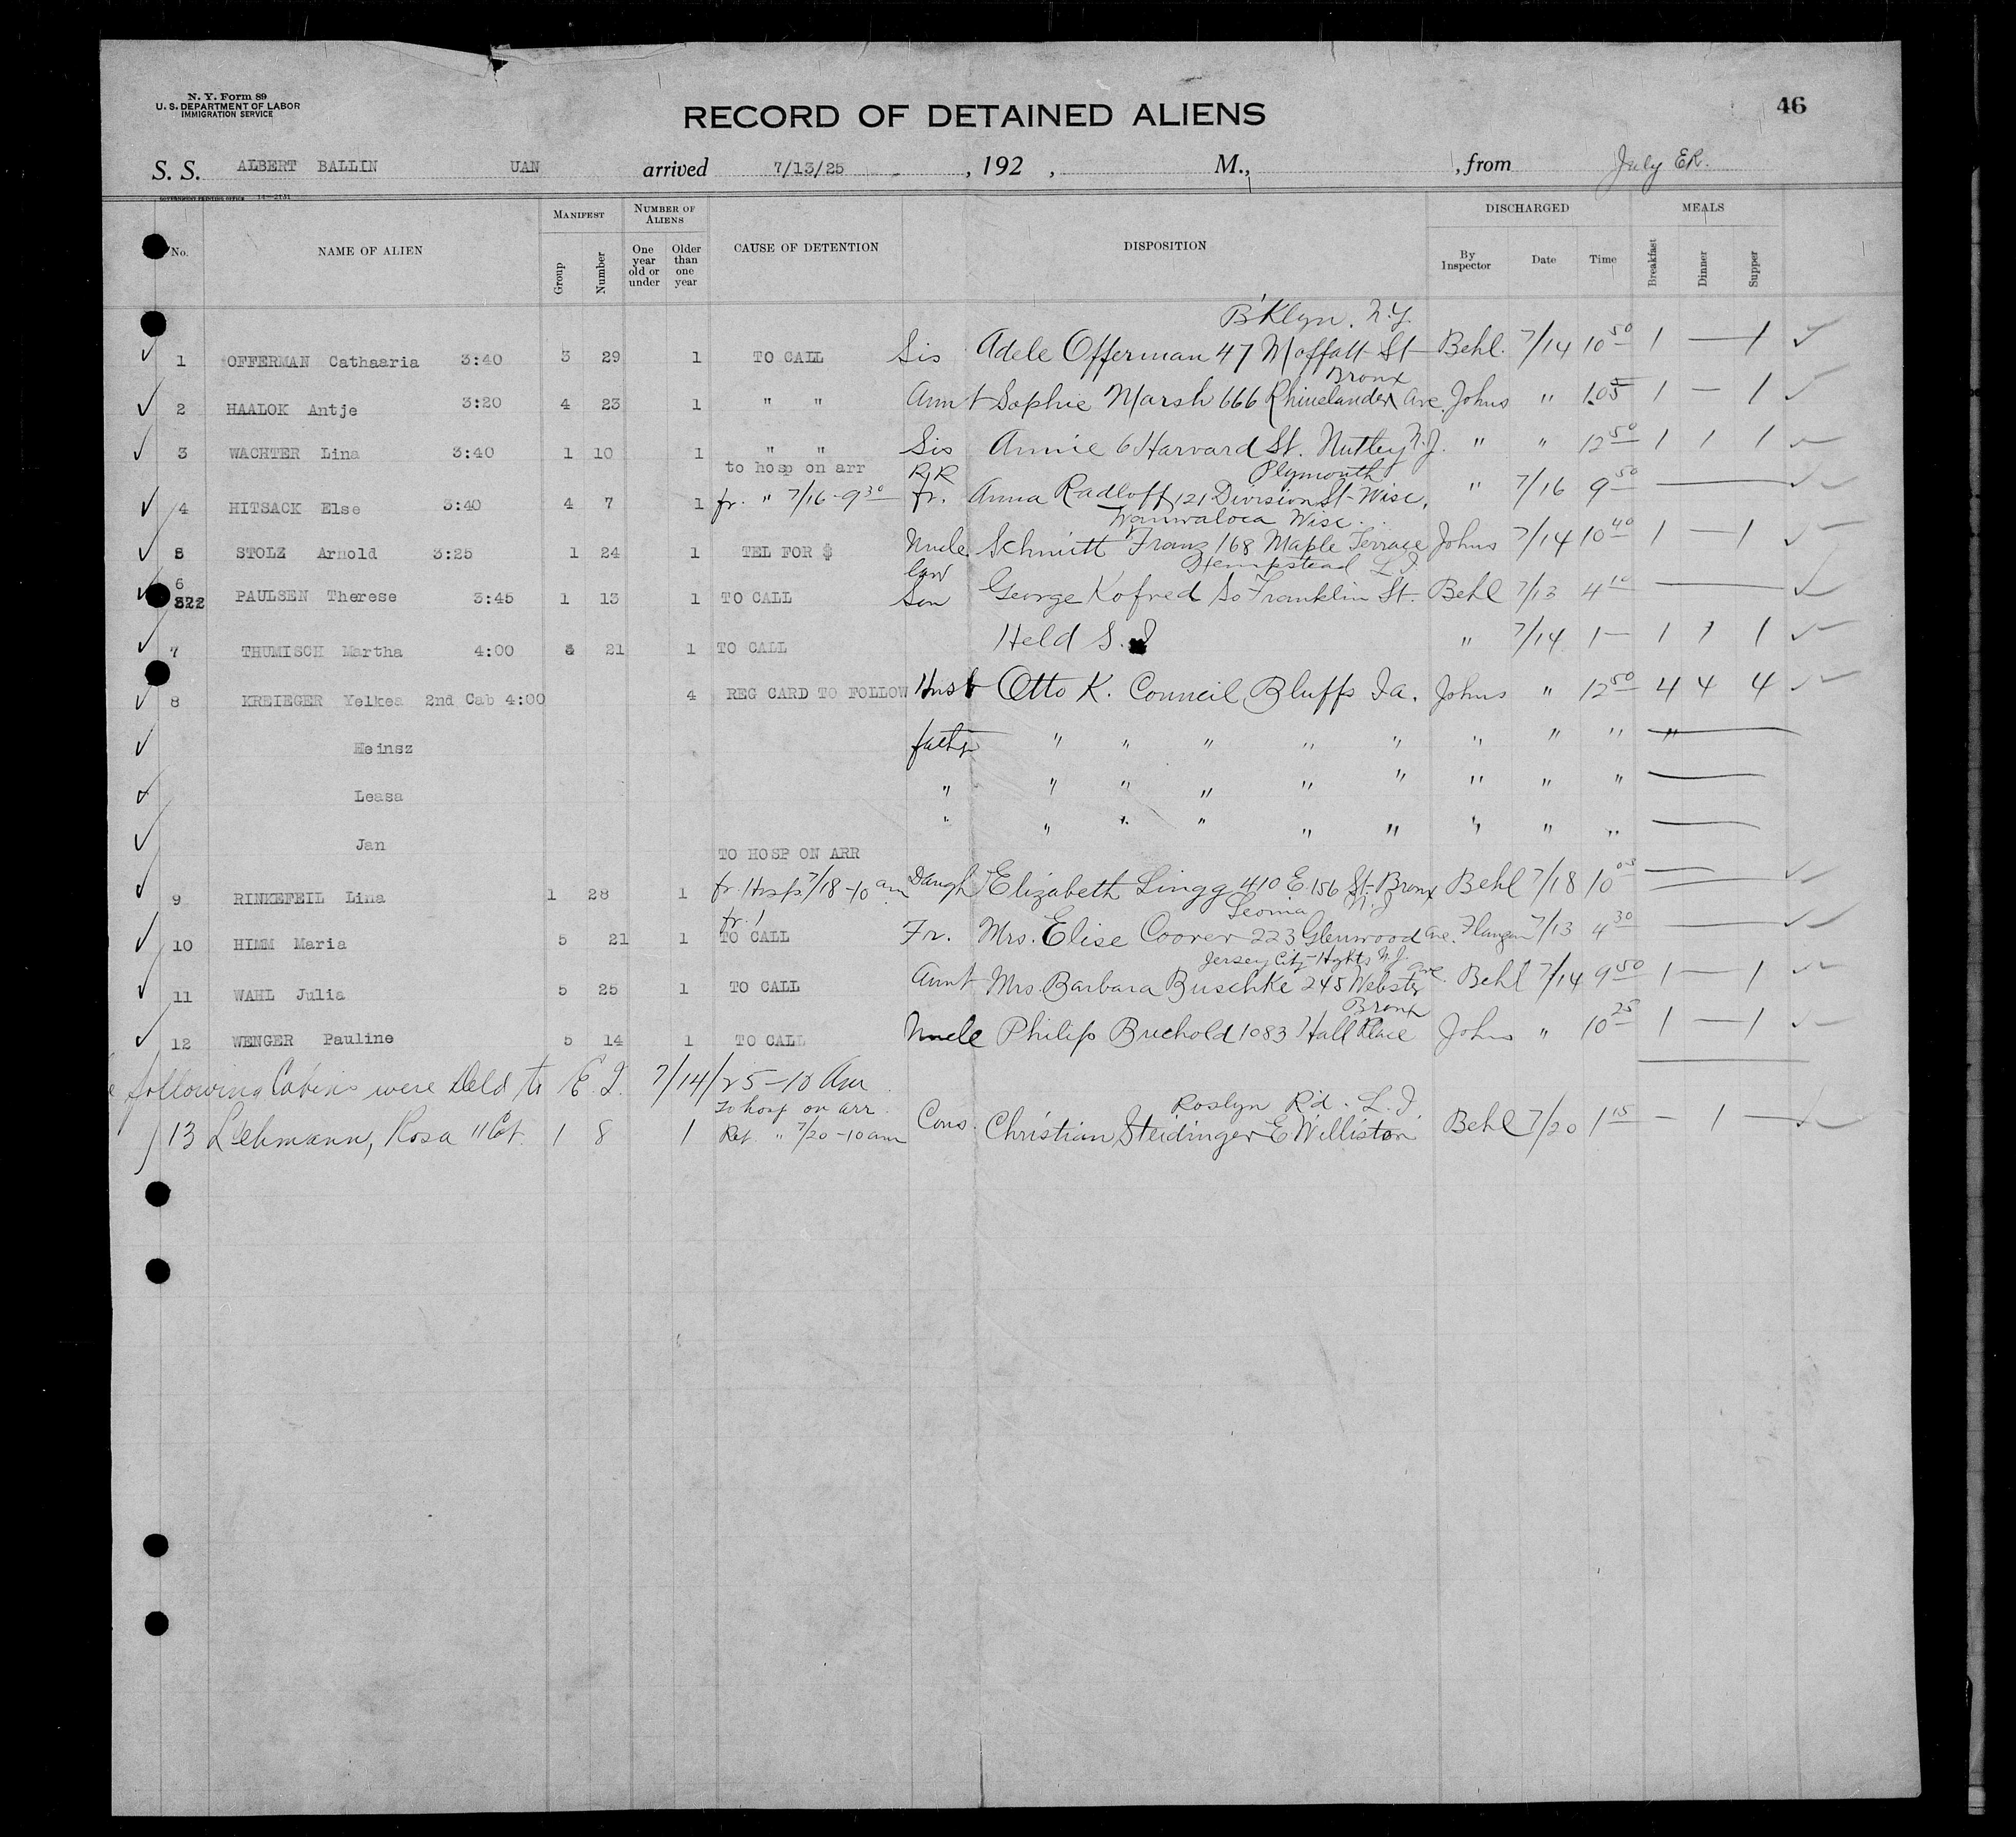 N. Y. Form 89
U. S. DEPARTMENT OF LABOR
IMMIGRATION SERVICE
RECORD OF DETAINED ALIENS
46
S. S. ALBERT BALLIN UAN arrived 7/13/25, 192 , M., , from July ER.
GOVERNMENT PRINTING OFFICE 14—2131
No. NAME OF ALIEN MANIFEST Group Number NUMBER OF ALIENS One year old or under Older than one year CAUSE OF DETENTION DISPOSITION DISCHARGED By Inspector Date Time MEALS Breakfast Dinner Supper
B'Klyn. N.Y.
1 OFFERMAN Cathaaria 3:40 3 29 1 TO CALL Sis Adele Offerman 47 Moffatt St Behl. 7/14 10 50 1 — 1
Bronx
2 HAALOK Antje 3:20 4 23 1 " " Aunt Sophie Marsh 666 Rhinelander Ave. Johns " 1.05 1 — 1
3 WACHTER Lina 3:40 1 10 1 " " Sis Annie 6 Harvard St. Nutley N.J. " " 12 50 1 1 1
to hosp on arr RR Plymouth
4 HITSACK Else 3:40 4 7 1 fr. " 7/16-9 30 fr. Anna Radloff 121 Division St- Wisc. " 7/16 9 50 —
Wisc.
5 STOLZ Arnold 3:25 1 24 1 TEL FOR $ Uncle Schmitt Franz 168 Maple Terrace Johns 7/14 10 40 1 — 1
law Hempstead L.I.
6 322 PAULSEN Therese 3:45 1 13 1 TO CALL Son George Kofred So Franklin St. Behl 7/13 4 10 —
7 THUMISCH Martha 4:00 21 1 TO CALL Held S.I " 7/14 1— 1 1 1
8 KREIEGER Yelkea 2nd Cab 4:00 4 REG CARD TO FOLLOW Husb Otto K. Council Bluffs Ia. Johns " 12 50 4 4 4
Heinsz father " " " " " " " " "
Leasa " " " " " " " " " —
Jan " " " " " " " " " —
TO HOSP ON ARR
9 RINKEFEIL Lina 1 28 1 fr. Hosp 7/18-10 am Daugh Elizabeth Lingg 410 E. 156 St- Bronx Behl 7/18 10 05 —
fr. ! Leonia N.J
10 HIMM Maria 5 21 1 TO CALL Fr. Mrs. Elise Coover 223 Glenwood Ave. Flangan 7/13 4 30 —
Jersey City Hghts N.J.
11 WAHL Julia 5 25 1 TO CALL Aunt Mrs. Barbara Buschke 245 Webster Ave. Behl 7/14 9 50 1 — 1
Bronx
12 WENGER Pauline 5 14 1 TO CALL Uncle Philip Buchold 1083 Hall Place Johns " 10 25 1 — 1
following Cabins were Deld to E.I. 7/14/25-10 Am
To hosp on arr. Roslyn R'd. L.I.
13 Lehmann, Rosa II Cab. 1 8 1 Ret. " 7/20-10 am Cous. Christian Steidinger E Williston Behl 7/20 1 15 — 1 —